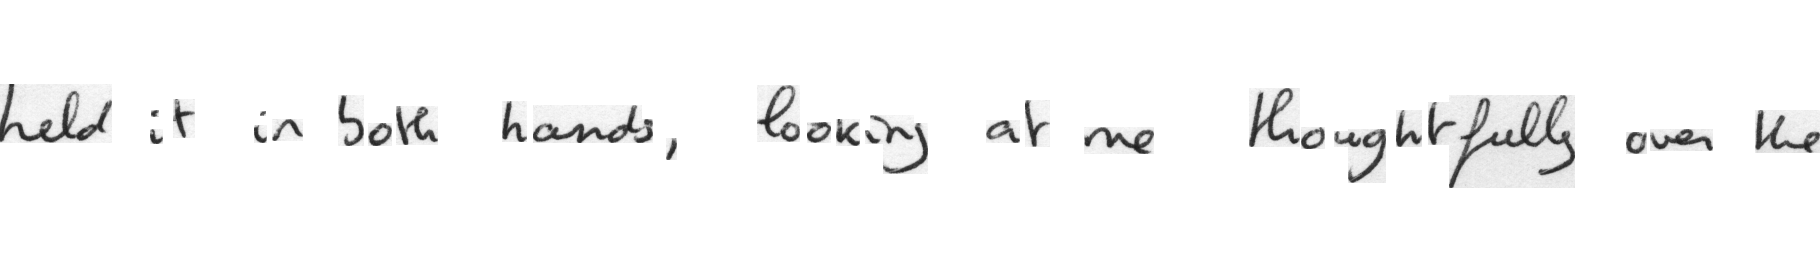 held it in both hands, looking at me thoughtfully over the